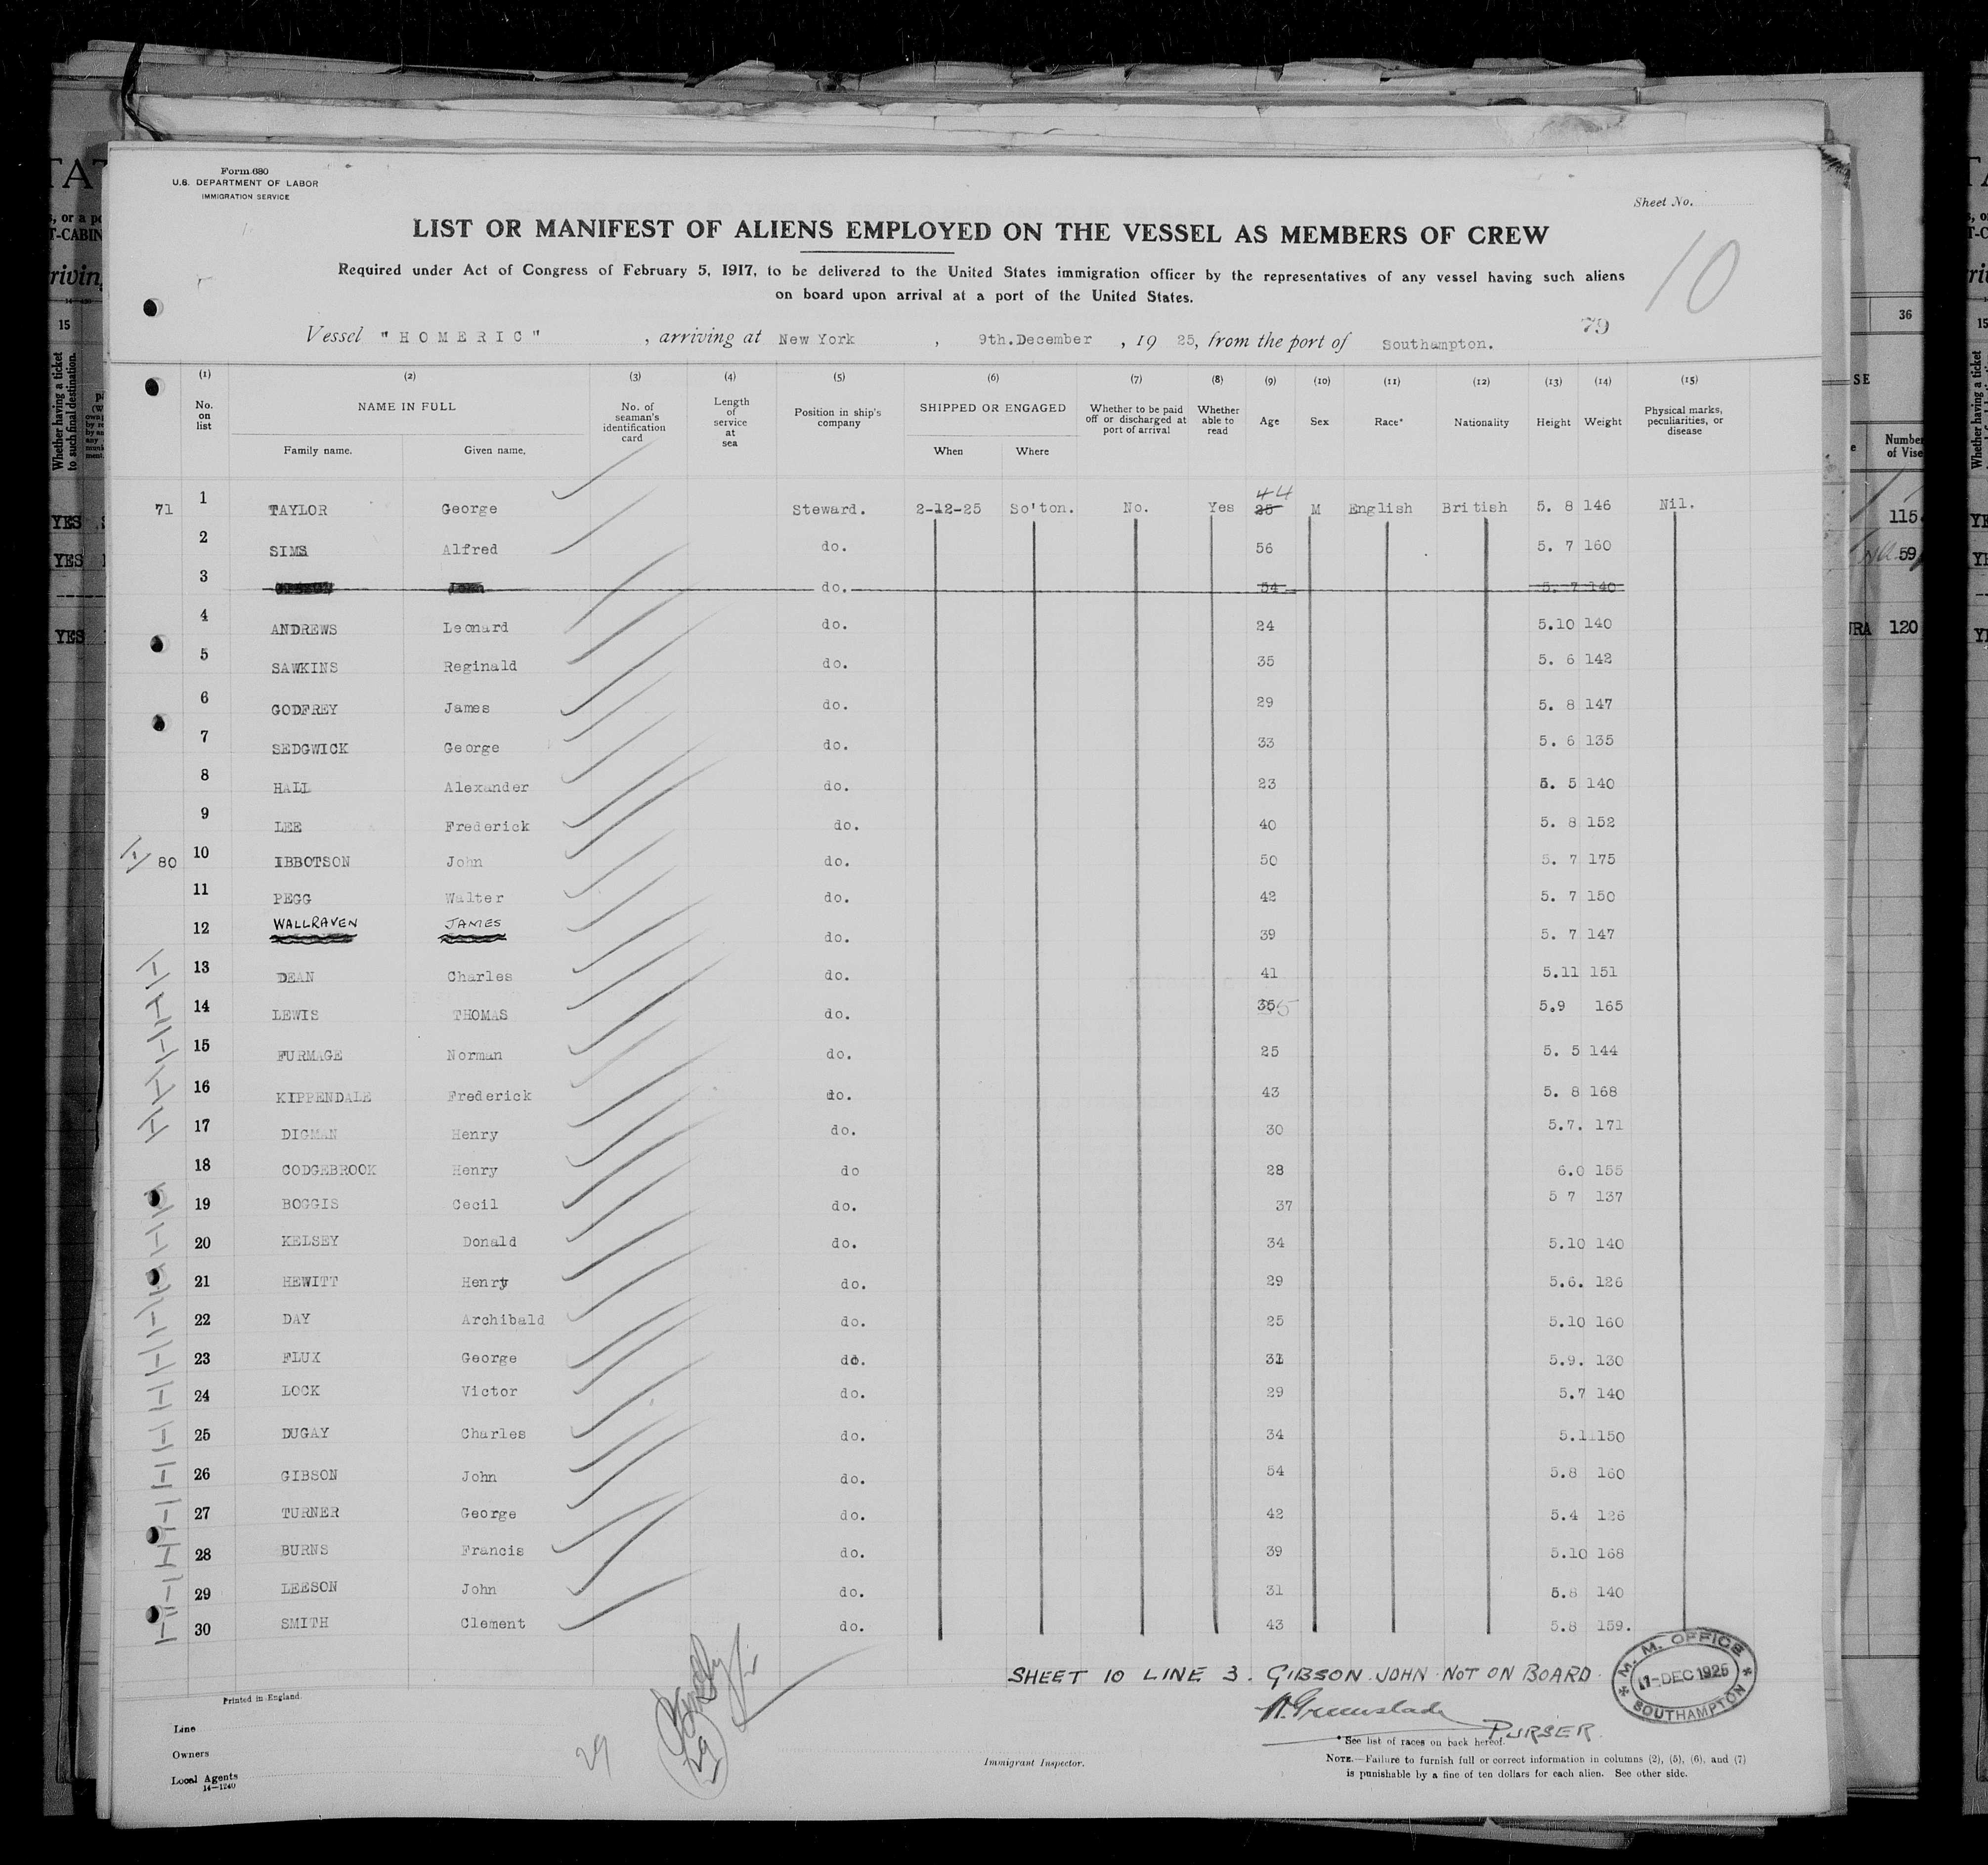 Form 680
U.S. DEPARTMENT OF LABOR
IMMIGRATION SERVICE
Sheet No.
10
LIST OR MANIFEST OF ALIENS EMPLOYED ON THE VESSEL AS MEMBERS OF CREW
Required under Act of Congress of February 5, 1917, to be delivered to the United States immigration officer by the representatives of any vessel having such aliens
on board upon arrival at a port of the United States.
79
Vessel "HOMERIC", arriving at New York, 9th.December, 19 25, from the port of Southampton.
(1) (2) (3) (4) (5) (6) (7) (8) (9) (10) (11) (12) (13) (14) (15)
No. on list NAME IN FULL Family name. Given name. No. of seaman's identification card Length of service at sea Position in ship's company SHIPPED OR ENGAGED When Where Whether to be paid off or discharged at port of arrival Whether able to read Age Sex Race* Nationality Height Weight Physical marks, peculiarities, or disease
71 1 TAYLOR George Steward. 2-12-25 So'ton. No. Yes 25 44 M English British 5. 8 146 Nil.
2 SIMS Alfred do. 56 5. 7 160
3 do. 54 5. 7 140
4 ANDREWS Leonard do. 24 5.10 140
5 SAWKINS Reginald do. 35 5. 6 142
6 GODFREY James do. 29 5. 8 147
7 SEDGWICK George do. 33 5. 6 135
8 HALL Alexander do. 23 5. 5 140
9 LEE Frederick do. 40 5. 8 152
80 10 IBBOTSON John do. 50 5. 7 175
11 PEGG Walter do. 42 5. 7 150
12 WALLRAVEN JAMES do. 39 5. 7 147
13 DEAN Charles do. 41 5.11 151
14 LEWIS THOMAS do. 35 5.9 165
15 FURMAGE Norman do. 25 5. 5 144
16 KIPPENDALE Frederick do. 43 5. 8 168
17 DIGMAN Henry do. 30 5.7. 171
18 CODGEBROOK Henry do 28 6.0 155
19 BOGGIS Cecil do. 37 5 7 137
20 KELSEY Donald do. 34 5.10 140
21 HEWITT Henry do. 29 5.6. 126
22 DAY Archibald do. 25 5.10 160
23 FLUX George do. 31 5.9. 130
24 LOCK Victor do. 29 5.7 140
25 DUGAY Charles do. 34 5.1 150
26 GIBSON John do. 54 5.8 160
27 TURNER George do. 42 5.4 126
28 BURNS Francis do. 39 5.10 168
29 LEESON John do. 31 5.8 140
30 SMITH Clement do. 43 5.8 159.
SHEET 10 LINE 3. GIBSON JOHN NOT ON BOARD.
M. M. OFFICE
DEC 1925
SOUTHAMPTON
Printed in England.
Line
Owners
Local Agents
14—1240
29
29
Immigrant Inspector.
PURSER.
*See list of races on back hereof.
NOTE.—Failure to furnish full or correct information in columns (2), (5), (6), and (7)
is punishable by a fine of ten dollars for each alien. See other side.
15
Whether having a ticket
to such final destination.
YES
YES
YES
36
Number
of Vise
115
59
120